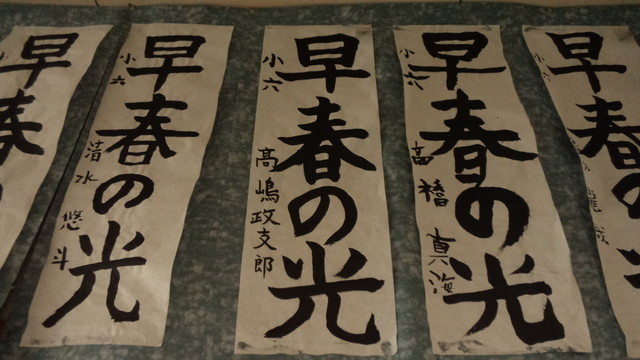 早春
小六
早春の光
清水悠斗
小六
早春の光
高嶋政支郎
小六
早春の光
髙橋真海
小六
早春